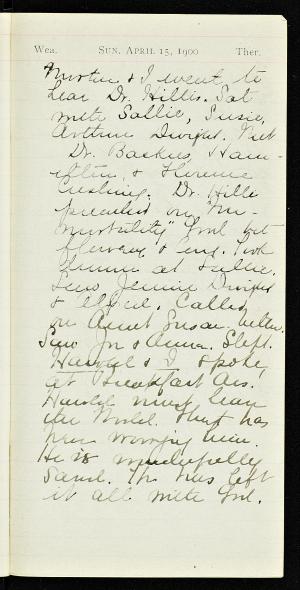 Wea. SUN. APRIL 15, 1900 Ther.
& I went to
hear Dr. Hillis. Sat
with Sallie, Susie,
Arthur Dwight. Met
Dr. Backus, Ham-
ilton, & Florence
Cushing. Dr. Hillis
preached on "Im-
mortality"
flowers & eng. Took
dinner at Sallie.
Saw Jennie Dwight
& Alfred. Called
on Aunt Susan
Saw Jn & Anna. Slept.
Harold & I spoke
at Breakfast
Harold must leave
the World. That has
been worrying him.
He is wonderfully
He has left
it all with God.